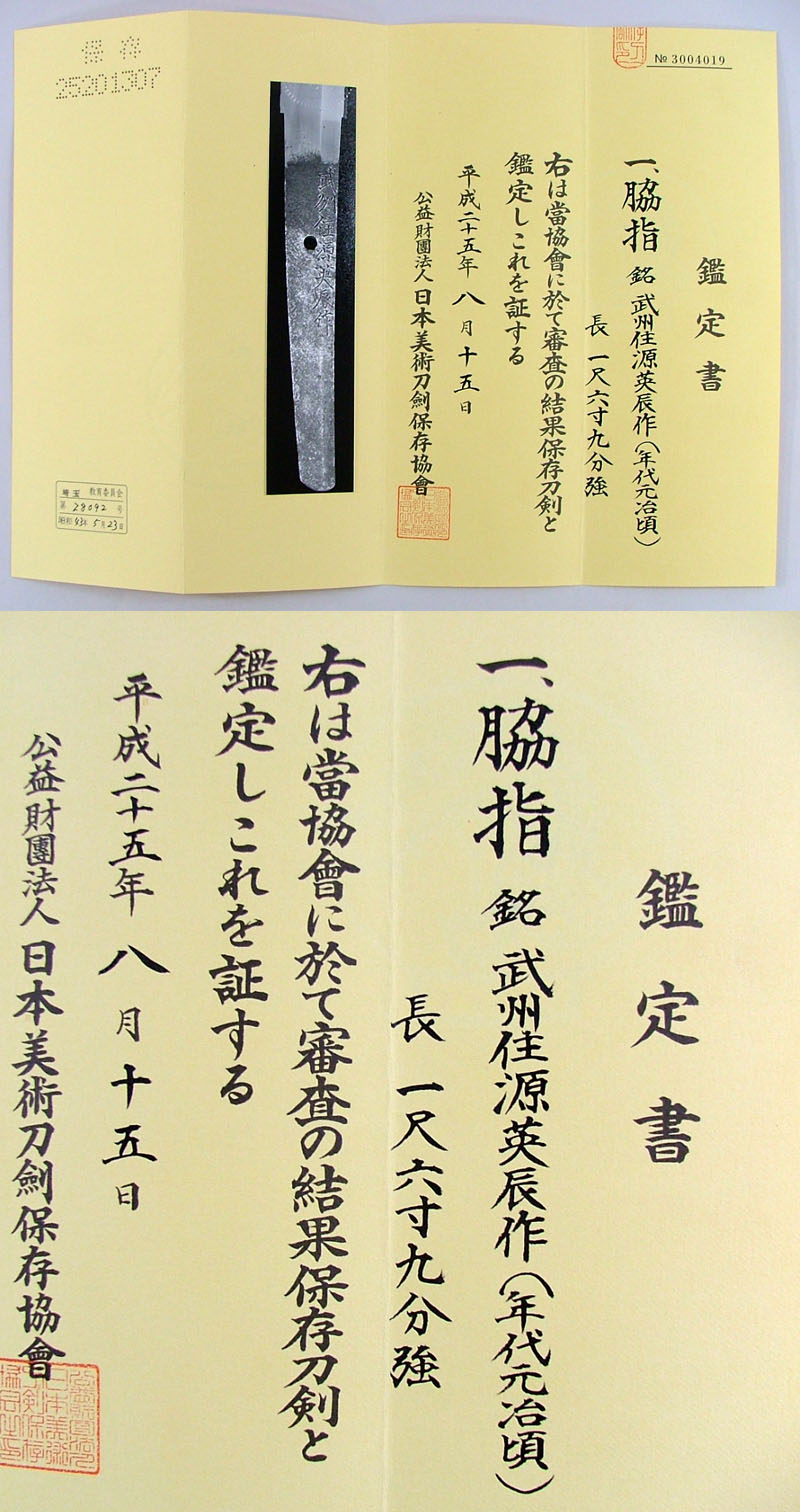 № 3004019
鑑定書
一、脇指 銘 武州住源英辰作(年代元治頃)
長 一尺六寸九分強
右は當協會に於て審査の結果保存刀剣と
鑑定しこれを証する
平成二十五年 八月十五日
公益財團法人 日本美術刀劍保存協會
武州住源英辰作
保存
25201307
埼玉 教育委員会
第 28092 号
昭和43年 5月23日
鑑定書
一、脇指 銘 武州住源英辰作(年代元治頃)
長 一尺六寸九分強
右は當協會に於て審査の結果保存刀剣と
鑑定しこれを証する
平成二十五年 八月十五日
公益財團法人 日本美術刀劍保存協會